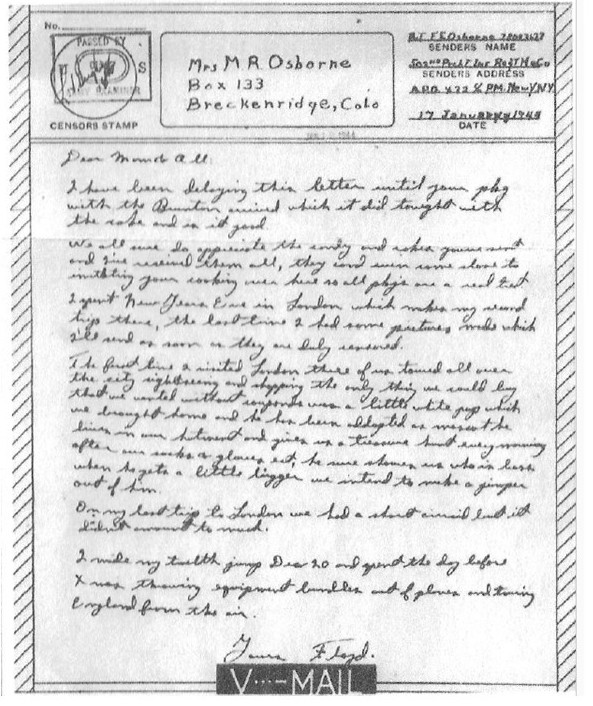 No.
PASSED BY
U S
ARMY EXAMINER
CENSORS STAMP
Mrs M R Osborne
Box 133
Breckenridge, Colo
SENDERS NAME
502nd Pcht Inf Regt
SENDERS ADDRESS
A.P.O. % P.M. New Y. N.Y.
17 January 1944
DATE
Dear Mom & All:
I have been delaying this letter until your pkg
with the Brunton arrived which it did tonight with
the cake and is it good
We all sure do appreciate the candy and cakes you've sent
and I've received them all, they can't even come close to
imitating your cooking over here so all pkgs are a real treat
I spent New Years Eve in London which makes my second
trip there, the last time I had some pictures made which
I'll send as soon as they are duly censored.
The first time I visited London three of us toured all over
the city sightseeing and shopping the only thing we could buy
that we wanted without coupons was a little white pup which
we brought home and he has been adopted as mascot he
lives in our hutment and gives us a treasure hunt every morning
after our socks or gloves ect, he sure shows us who is boss
when he gets a little bigger we intend to make a jumper
out of him.
On my last trip to London we had a short airraid but it
didn't amount to much.
I made my twelth jump Dec 20 and spent the day before
Xmas throwing equipment bundles out of planes and touring
England from the air.
Yours Floyd.
V···—MAIL